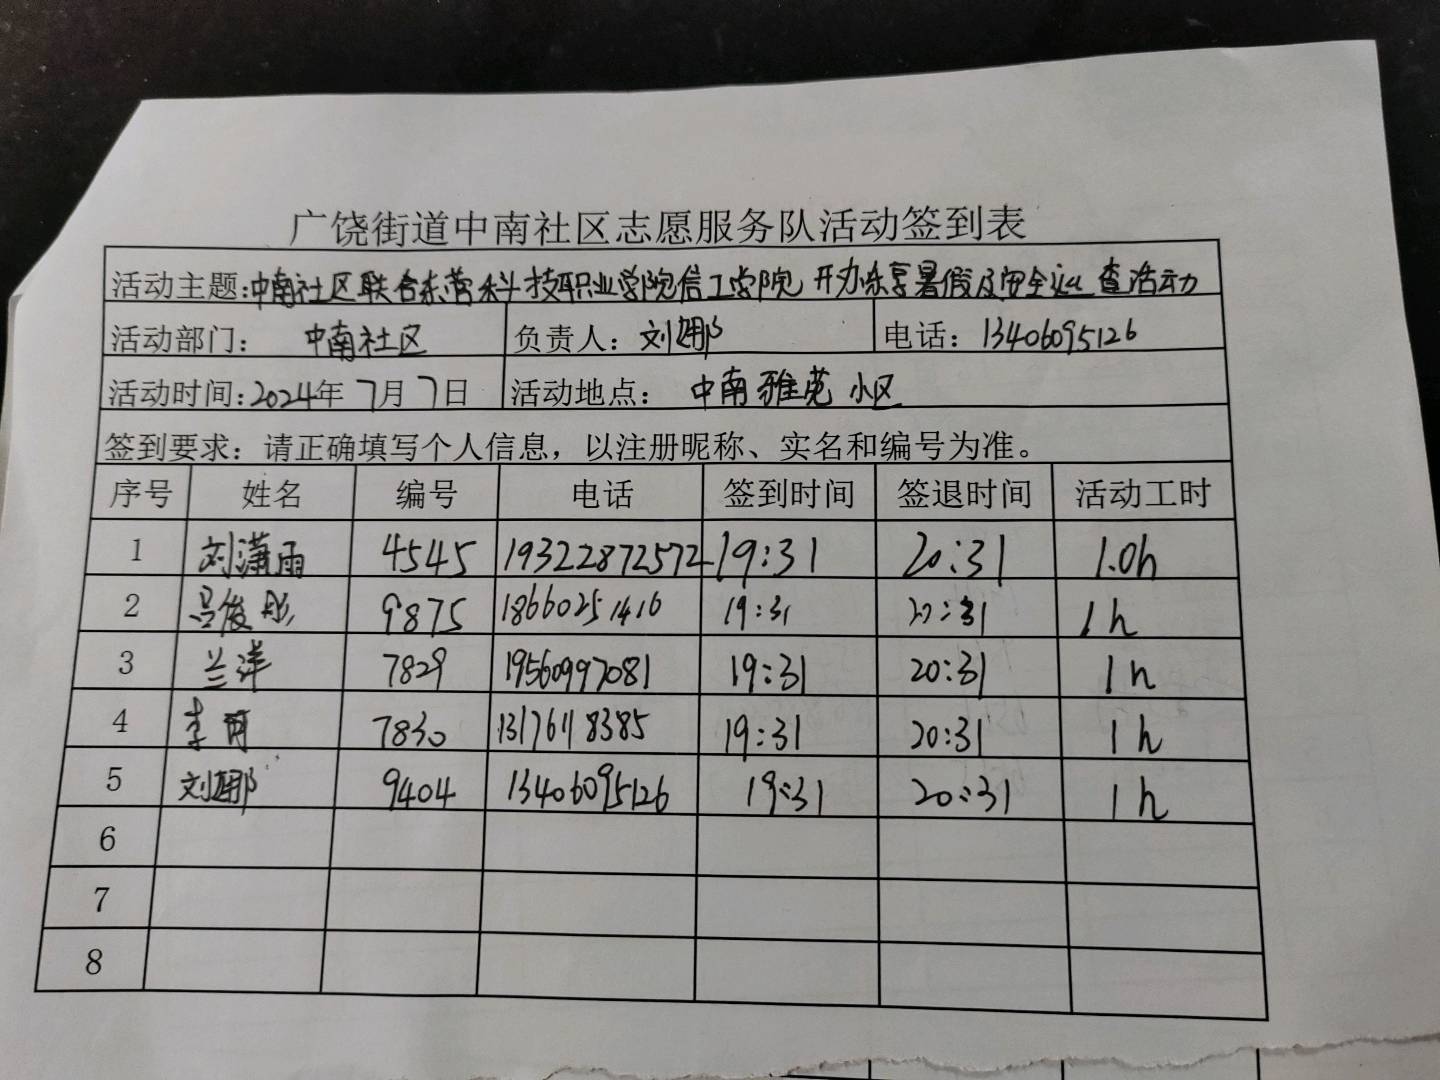 广饶街道中南社区志愿服务队活动签到表
活动主题：中南社区联合东营科技职业学院信工学院 开办乐享暑假及安全 查活动
活动部门： 中南社区 负责人：刘娜 电话：13406095126
活动时间：2024年 7月 7日 活动地点： 中南雅苑小区
签到要求：请正确填写个人信息，以注册昵称、实名和编号为准。
序号 姓名 编号 电话 签到时间 签退时间 活动工时
1 刘潇雨 4545 19322872572 19:31 20:31 1.0h
2 吕俊彤 9875 18660251416 19:31 20:31 1h
3 兰洋 7829 19560997081 19:31 20:31 1h
4 李 7830 13176118385 19:31 20:31 1h
5 刘娜 9404 13406095126 19:31 20:31 1h
6
7
8